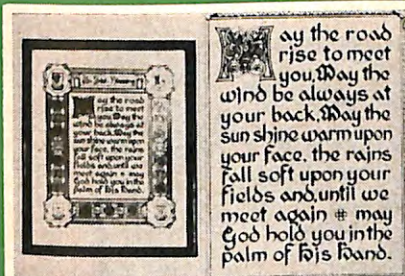 May the road
rise to meet
you, May the
wind be always at
your back, May the
sun shine warm upon
your face, the rains
fall soft upon your
fields and until we
meet again may
God hold you in the
palm of His Hand.
May the road
rise to meet
you, May the
wind be always at
your back, May the
sun shine warm upon
your face, the rains
fall soft upon your
fields and, until we
meet again may
God hold you in the
palm of His Hand.